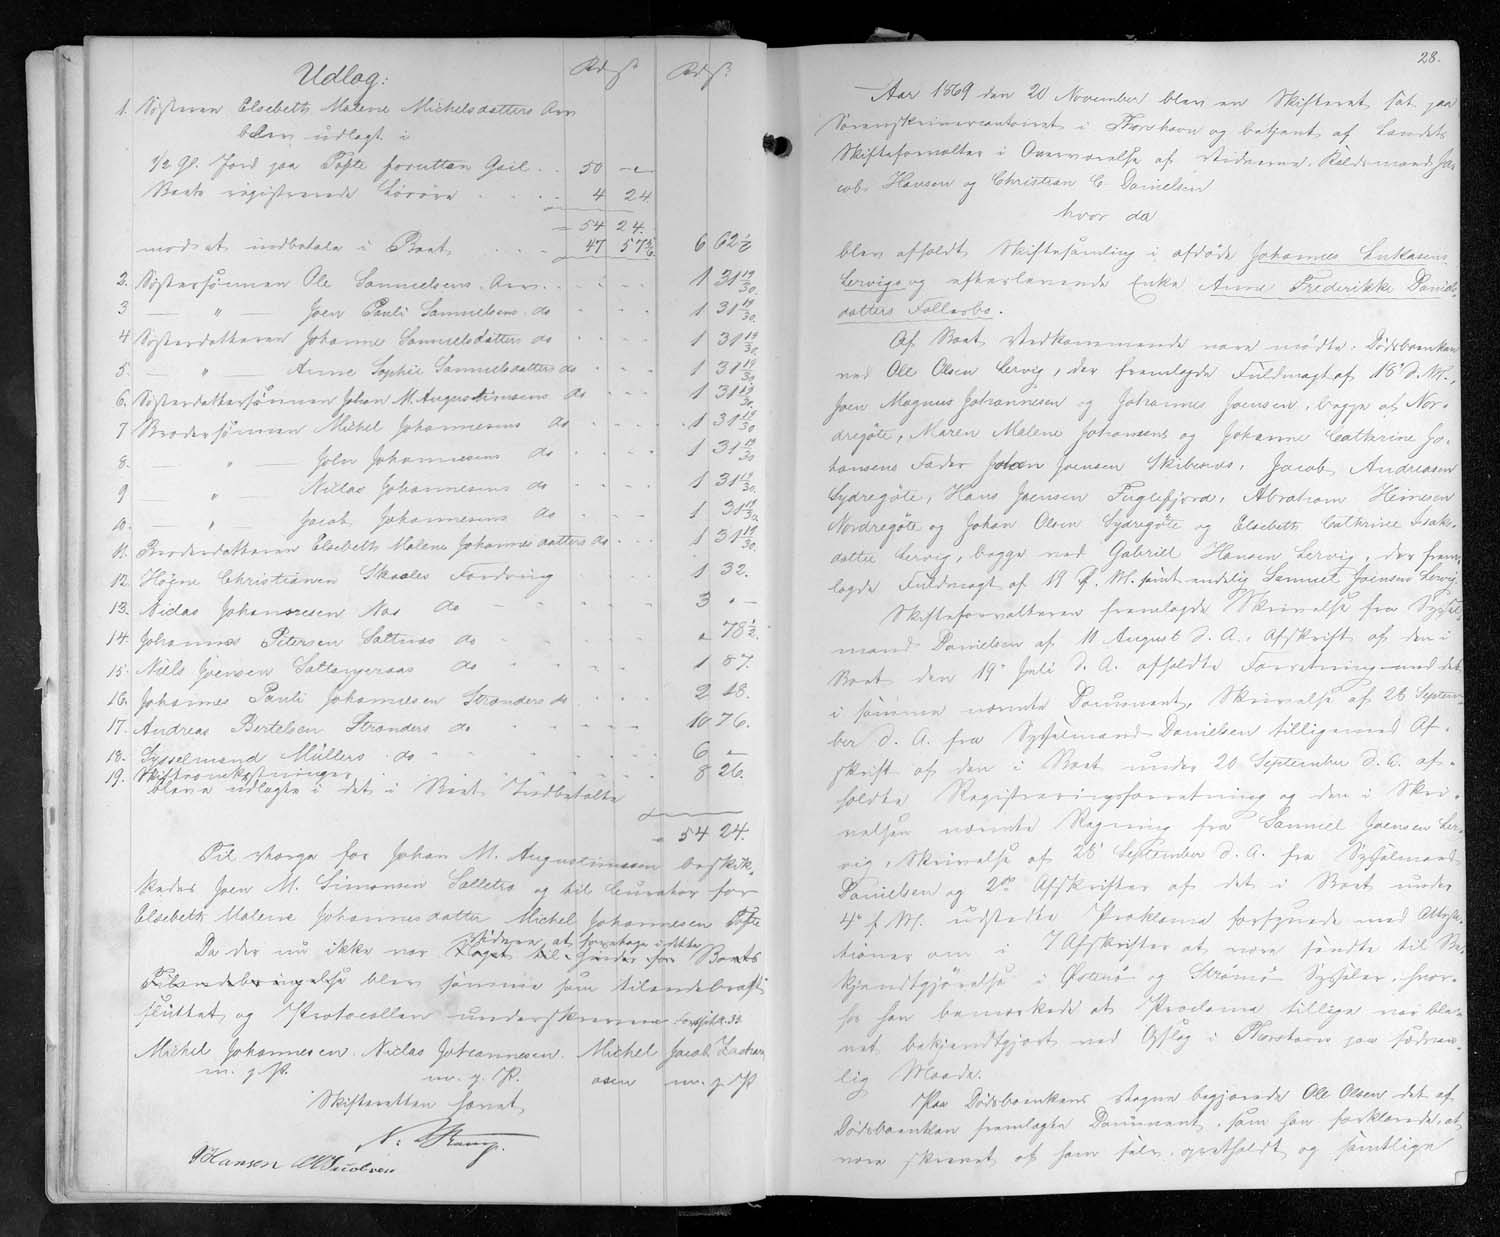 Udlæg:
Rd ß. Rd ß.
1. Søsteren Elsebeth Malene Michelsdatters Arv
blev udlagt i
1/2 Gl. Jord paa Tofte foruttan Gail . . 50 —
Boets registrerede Løsøre . . . . 4 24.
= 54 24.
modsat indbetale i Boet . . . 47 57 5/6 6 62 1/6
2. Søstersønnen Ole Samuelsens Arv . . . 1 31 19/30.
3 — " — Joen Pauli Samuelsens do . . . 1 31 19/30.
4 Søsterdatteren Johanne Samuelsdatters do . . . 1 31 19/30.
5. — " — Anne Sophie Samuelsdatters do . . . 1 31 19/30.
6. Søsterdattersønnen Johan M. Augustinusens do . . . 1 31 19/30.
7 Brodersønnen Michel Johannesens do . . . . 1 31 19/30.
8. — " — John Johannesens do . . . 1 31 19/30
9 — " — Niclas Johannesens do . . . 1 31 19/30.
10. — " — Jacob Johannesens do . . . 1 31 19/30.
11. Broderdatteren Elsebeth Malene Johannesdatters do . . . 1 31 19/30.
12. Høgne Christiansen Skaales Fordring . . . 1 32.
13. Niclas Johannesen Næs do . . . 3 " —
14. Johannes Petersen Saltnæs do . . . " 78 1/2.
15. Niels Joensen Saltangeraas do . . . 1 87.
16. Johannes Pauli Johannesen Strænders do . . . 2 18.
17. Andreas Bertelsen Strænders do . . . 10 76.
18. Sysselmand Müllers do . . . 6 —
19. Skifteomkostninger . . . 8 26.
bleve udlagte i det i Boet Indbetalte
= 54 24.
Til Værge for Johan M. Augustinussen beskik-
kedes Joen M. Simonsen Selletræ og til Curator for
Elsebeth Malene Johannesdatter Michel Johannesen Tofte
videre at foretage i dette
Da der nu ikke var Noget til Hinder for Boets
Tilendebringelse blev samme som tilendebragt
sluttet og Protocollen underskreven
Michel Johannesen. Niclas Johannesen. Michel Jacob Zachari
m. g. P. m. g. P. asen m. g. P
Skifteretten hævet
PHansen
28.
Aar 1869 den 20 November blev en Skifteret sat paa
Sorenskrivercontoiret i Thorshavn og betjent af Landets
Skifteforvalter i Overværelse af Vidnerne Rådsmænd Ja-
cob Hansen og Christian C. Danielsen
hvor da
blev afholdt Skiftesamling i afdøde Johannes Lukasens
Lervig og efterlevende Enke Anne Frederikke Daniels-
datters Fællesbo.
Af Boet Vedkommende vare mødte: Dødsboenken
ved Ole Olsen Lervig, der fremlagde Fuldmagt af 18' d. M.,
Joen Magnus Johannesen og Johannes Joensen, begge af Nor-
dregöte, Maren Malene Johansens og Johanne Cathrine Jo-
hansens Fader Johan Joensen Skibenæs, Jacob Andreasen
Sydregöte, Hans Joensen Fuglefjord, Abraham Heinesen
Nordregöte og Johan Olsen Sydregöte og Elsebeth Cathrine Isaks-
datter Lervig, begge ved Gabriel Hansen Lervig, der frem-
lagde Fuldmagt af 19 d. M. samt endelig Samuel Joensen Lervig.
Skifteforvalteren fremlagde Skrivelse fra Syssel-
mand Danielsen af 11 August d. A., Afskrift af den i
Boet den 19' Juli d. A. afholdte Forretning med det
i samme nævnte Document, Skrivelse af 26 Septem-
ber d. A. fra Sysselmand Danielsen tilligemed Af-
skrift af den i Boet under 20 September d. A. af-
holdte Registreringsforretning og den i Skri-
velsen nævnte Regning fra Samuel Joensen Ler-
vig, Skrivelse af 28' September d. A. fra Sysselmand
Danielsen og 2de Afskrifter af det i Boet under
4' f. M. udstedte Proklama forsynede med Attesta-
tioner om i 7 Afskrifter at være sendte til Be-
kjendtgjørelse i Østerø og Strømø Sysseler, hvor-
hos han bemærkede at Proclama tillige var ble-
vet bekjendtgjort ved Opslag i Thorshavn paa sædvan-
lig Maade.
Paa Dødsboenkens Vegne begjærede Ole Olsen det af
Dødsboenken fremlagte Document, som han forklarede at
være skrevet af ham selv, opretholdt og samtlige